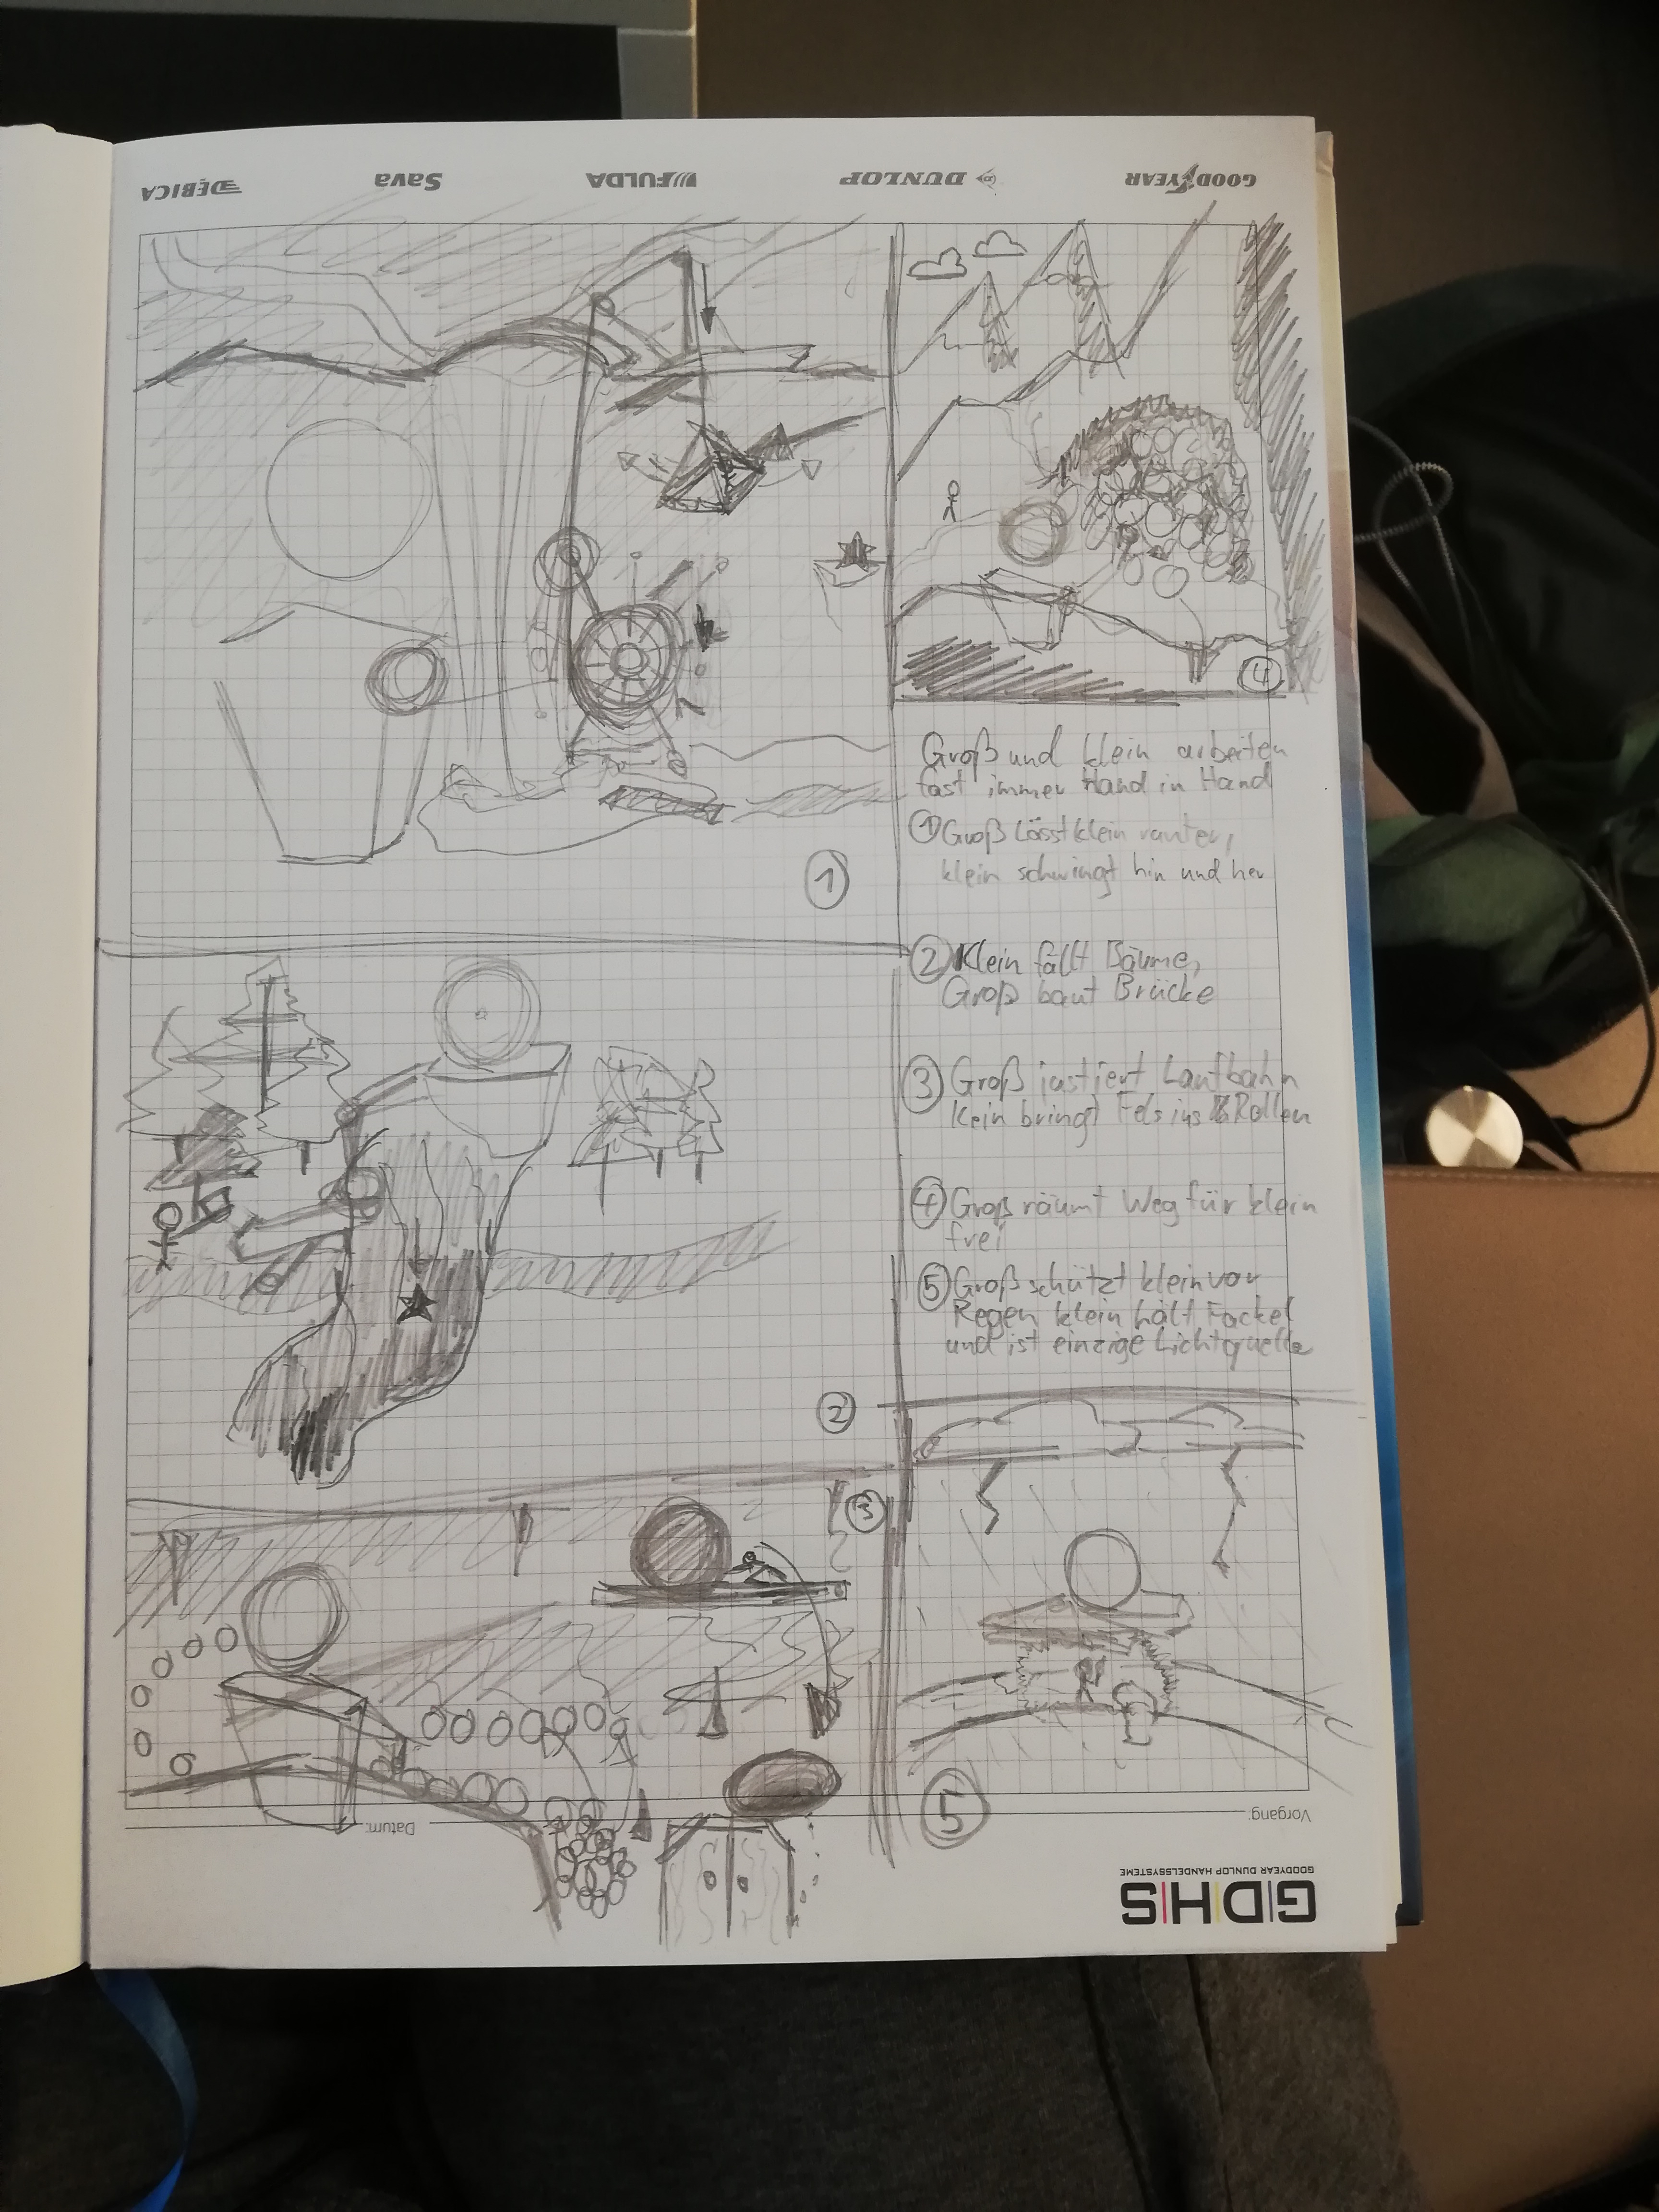 DĘBICA
Sava
FULDA
DUNLOP
GOODYEAR
4
Groß und klein arbeiten
fast immer Hand in Hand
① Groß lässt klein runter,
klein schwingt hin und her
1
② Klein fällt Bäume,
Groß baut Brücke
③ Groß justiert Laufbahn
Klein bringt Fels ins Rollen
④ Groß räumt Weg für klein
frei
⑤ Groß schützt klein vor
Regen klein hält Fackel
und ist einzige Lichtquelle
2
3
5
Vorgang:
Datum:
GOODYEAR DUNLOP HANDELSSYSTEME
GDHS